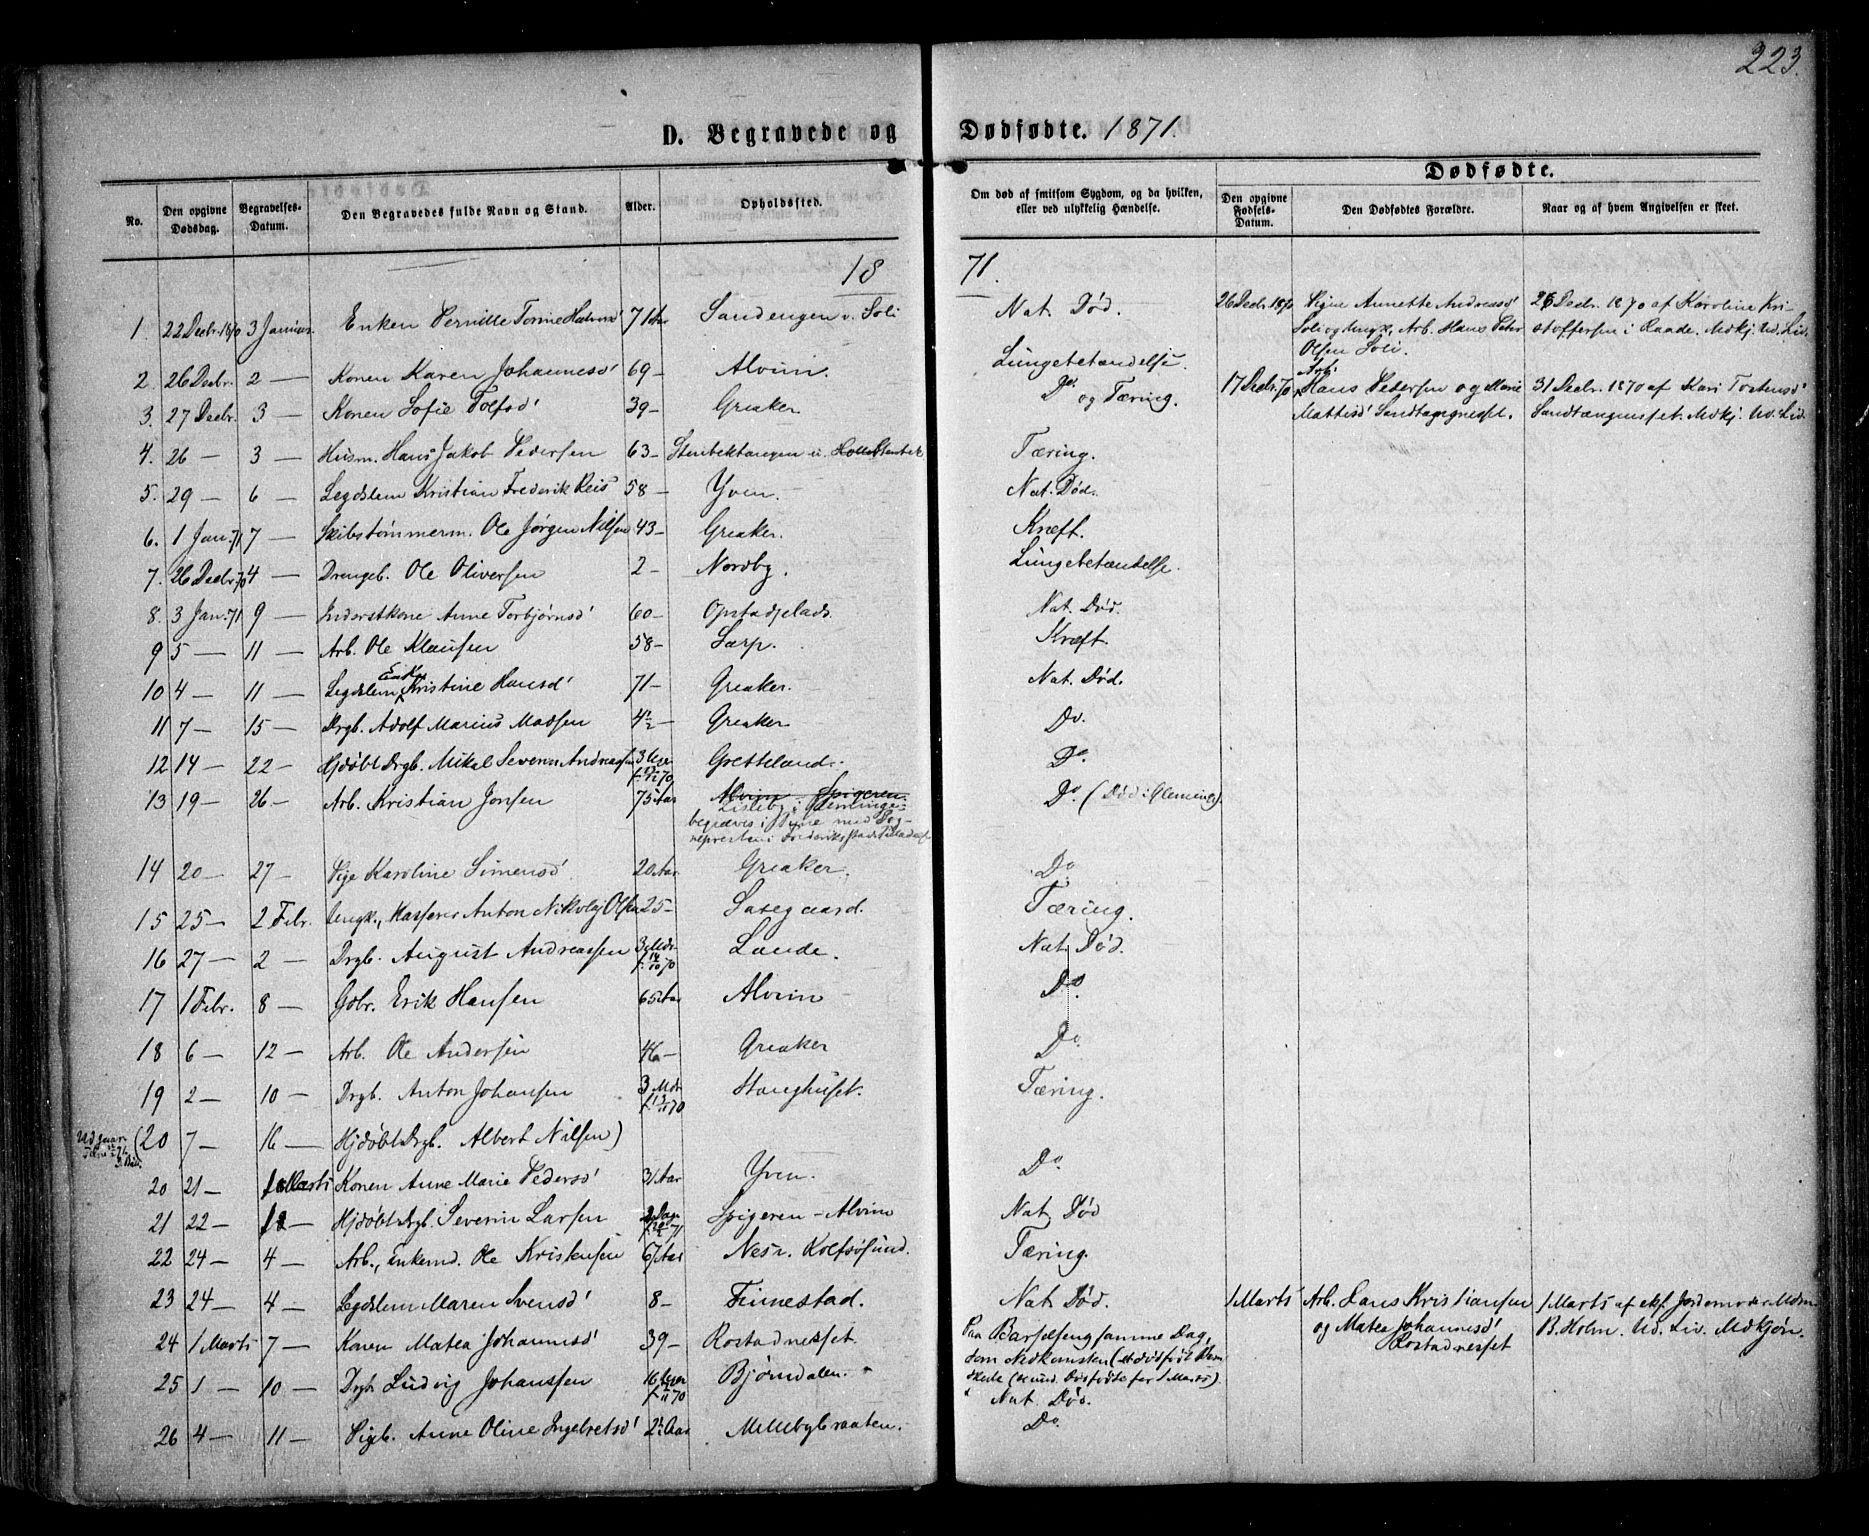 223.
D. Begravede og Dødfødte. 1871.
Dødfødte.
No. Den opgivne Dødsdag. Begravelses-Datum. Den Begravedes fulde Navn og Stand. Alder. Opholdssted. Om død af smitsom Sygdom, og da hvilken, eller ved ulykkelig Hændelse. Den opgivne Fødsels-Datum. Den Dødfødtes Forældre. Naar og af hvem Angivelsen er skeet.
18 71.
1. 22 Decbr. 1870 3 Januar Enken Pernille Torine 71 Aar Sandengen v. Soli Nat. Død. 26 Decbr. 1870 Pigen Annette Andreasd' 26 Decbr. 1870 af Karoline Kri-
Soli og Ungk. Arb. Hans Peter stoffersen i Raade. Mdkj. Ud. Liv.
Olsen Soli.
2. 26 Decbr. 2 — Konen Karen Johannesd' 69 — Alvim. Lungebetændelse.
3. 27 Decbr. 3 — Konen Sofie Tolfsd' 39 — Greaker Do og Tæring. 17 Decbr. 70 Arb. Hans Pedersen og Marie 31 Decbr. 1870 af Kari
Mattisd' Mdkj. Ud. Liv.
4. 26 — 3 — Husm. Hans Jakob Pedersen 63 — Stenbektangen u. Tæring.
5. 29 — 6 — Legdslem Kristian Frederik Reis 58 — Yven. Nat. Død.
6. 1 Jan. 71 7 — Skibstømmerm. Ole Jørgen Nilsen 43 — Greaker. Kræft.
7. 26 Decbr. 70 4 — Drengeb. Ole Oliversen 2 — Nordby. Lungebetændelse.
8. 3 Jan. 71 9 — Inderstkone Anne Torbjørnsd' 60 — Opstadplads. Nat. Død.
9 5 — 11 — Arb. Ole Klausen 58 — Sarp. Kræft.
10 4 — 11 — Legdslem Enke Kristine Hansd' 71 — Greaker. Nat. Død.
11 7 — 15 — Drgb. Adolf Marius Madsen 4½ — Greaker Do.
12 14 — 22 — Hjdøbt Drgb. Mikal Severin Andreassen 3 Uger Gretteland. Do.
13 19 — 26 — Arb. Kristian Jonsen 75 Aar Alvim Spigeren Do. (Død i Glemminge).
Listeby i Glemminge
14 20 — 27 — Pige Karoline Simensd' 20 Aar Greaker. Do
15 25 — 2 Febr. Ungk., Anton Nikolaj Olsen 25 — Tæring.
16 27 — 2 — Drgb. August Andreassen 3 Mdr. f. 14/10 70 Lande. Nat. Død.
17 1 Febr. 8 — Gbr. Erik Hansen 65 Aar Alvim Do.
18 6 — 12 — Arb. Ole Andersen 46 — Greaker Do
19 2 — 10 — Drgb. Anton Johansen 3 Mdr. f. 13/11 70 Stanghuset. Tæring.
Udgaar (20 7 — 16 — Hjdøbt Drgb. Albert Nilsen)
20 21 — 1 Marts Konen Anne Marie Pedersd' 31 Aar Yven. Do.
21 22 — Hjdøbt Drgb. Severin Larsen 2 Dage Spigeren — Alvim Nat. Død
22 24 — 4 — Arb., Enkemd. Ole Kristensen 67 Aar Nes v. Kolfsøsund. Tæring.
23 24 — 4 — Legdslem Maren Svensd' 8 — Finnestad. Nat. Død. 1 Marts Arb. Hans Kristiansen 1 Marts af exf. Jordemoder
og Matea Johannesd' B. Holm. Ud. Liv. Mdkjøn.
Rostadnesset
24 1 Marts 7 — Konen Matea Johannesd' 39 — Rostadnesset. Paa Barselseng samme Dag,
som Nedkomsten (et dødfødt Barn
skede (se und. Dødfødte for 1 Marts).
25 1 — 10 — Drgb. Ludvig Johanssen 16 Uger Bjørndalen. Nat. Død.
26 4 — 11 — Pigeb. Anne Oline Ingebretsd' 2½ Aar Millebybraaten. Do